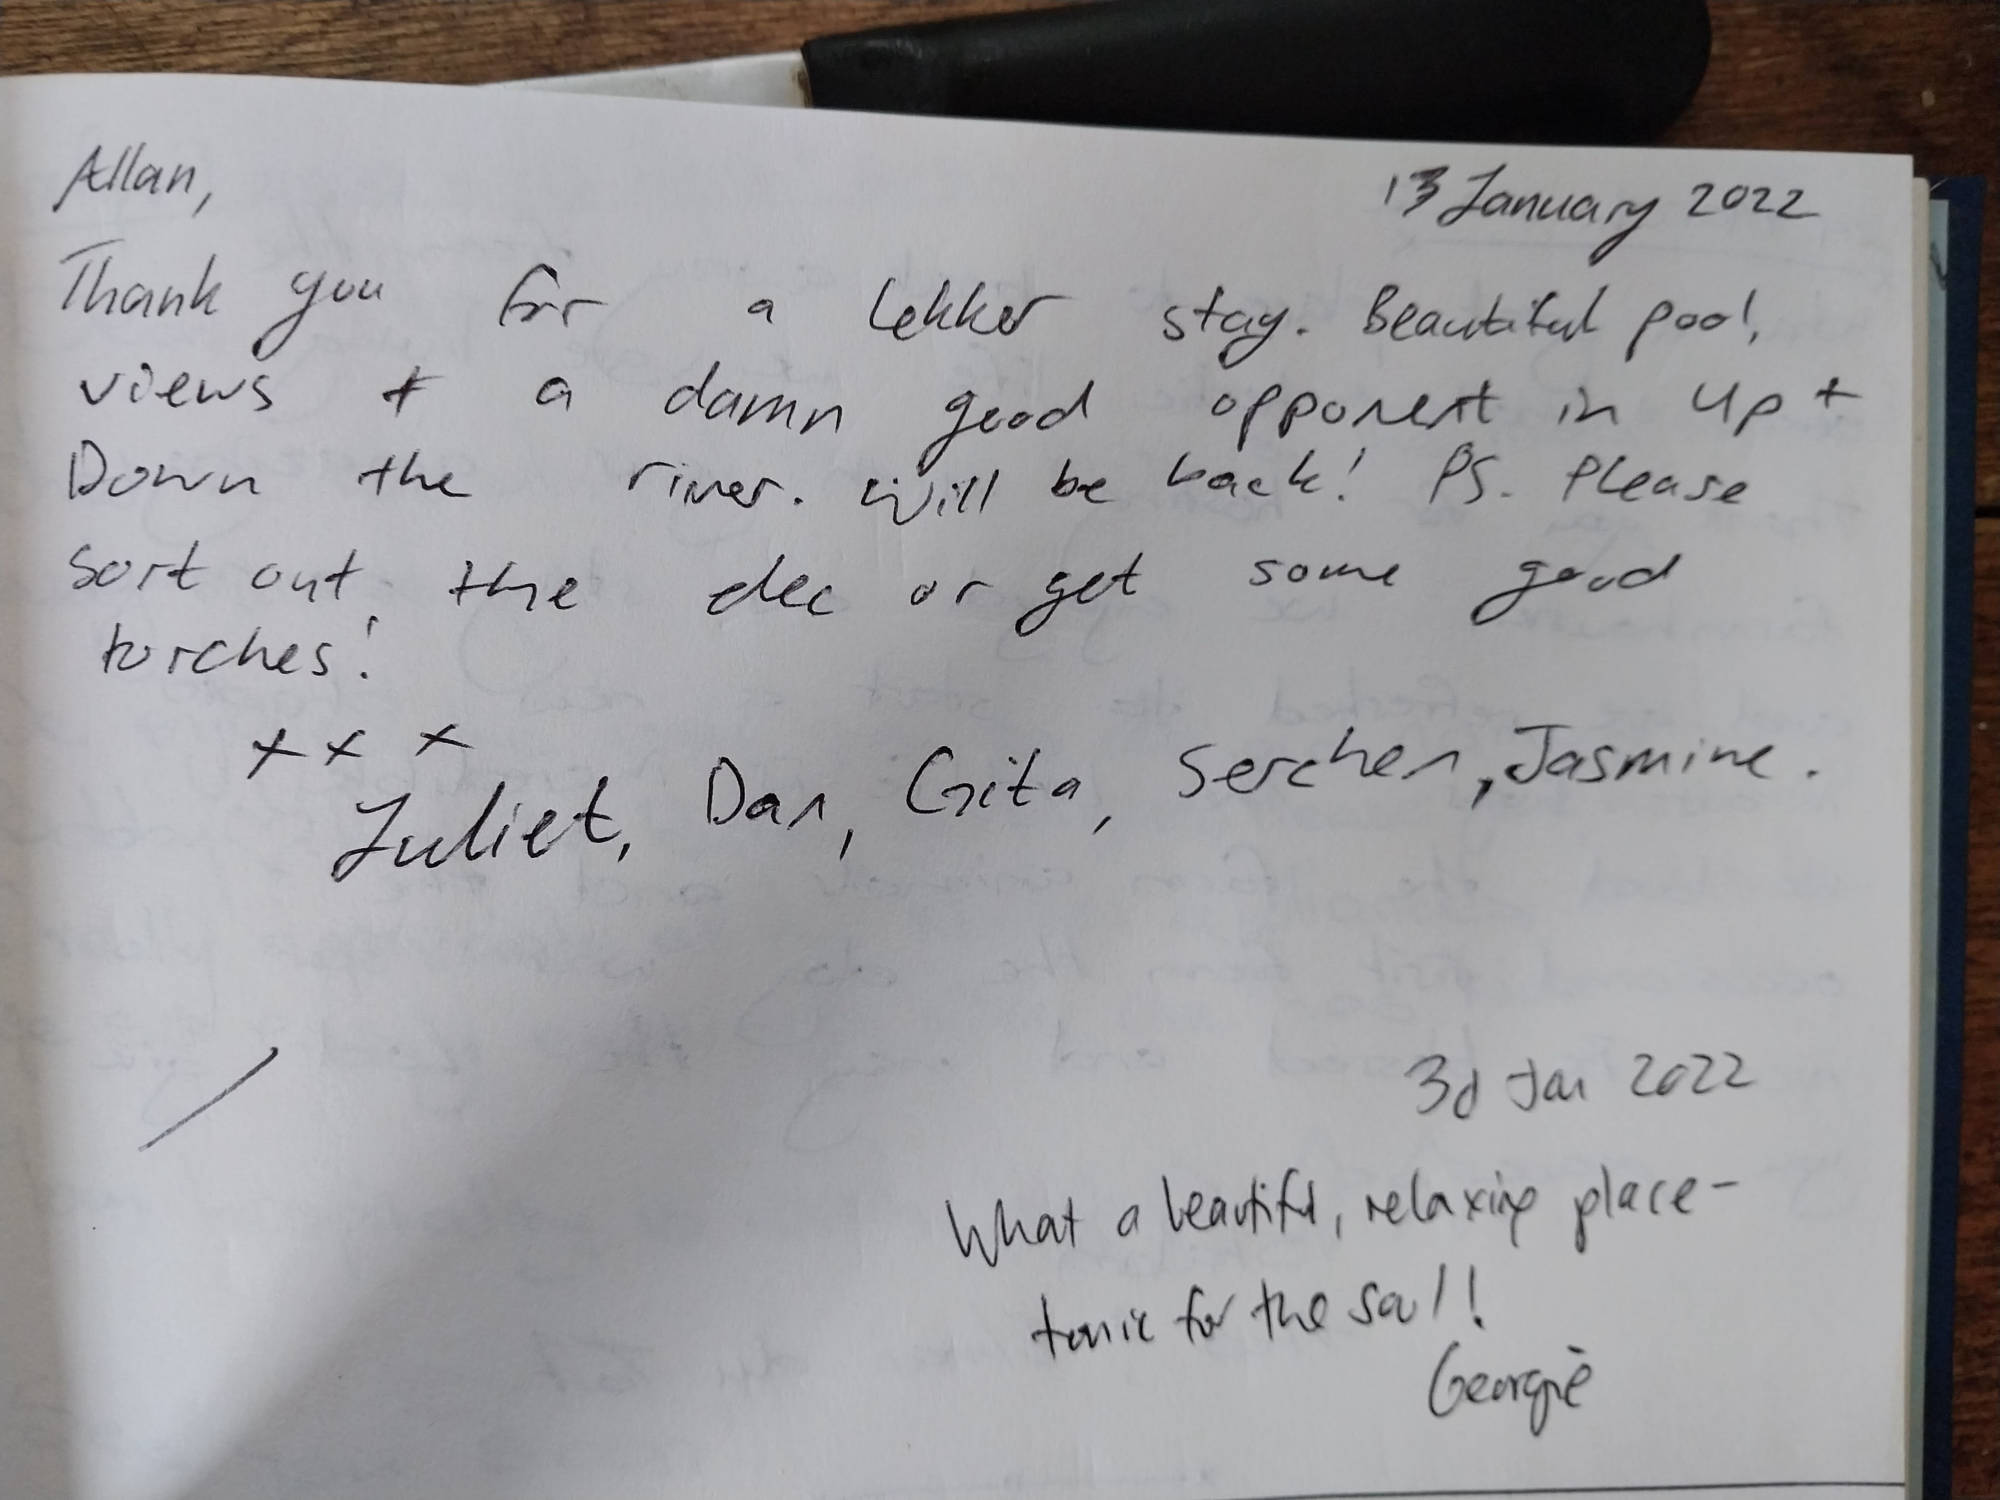 Allan,
13 January 2022
Thank you for a lekker stay. Beautiful pool,
views + a damn good opponent in Up +
Down the river. Will be back! PS. Please
sort out the elec or get some good
torches!
x x x
Juliet, Dan, Gita, Serchen, Jasmine.
3d Jan 2022
What a beautiful, relaxing place -
tonic for the soul!
Georgie